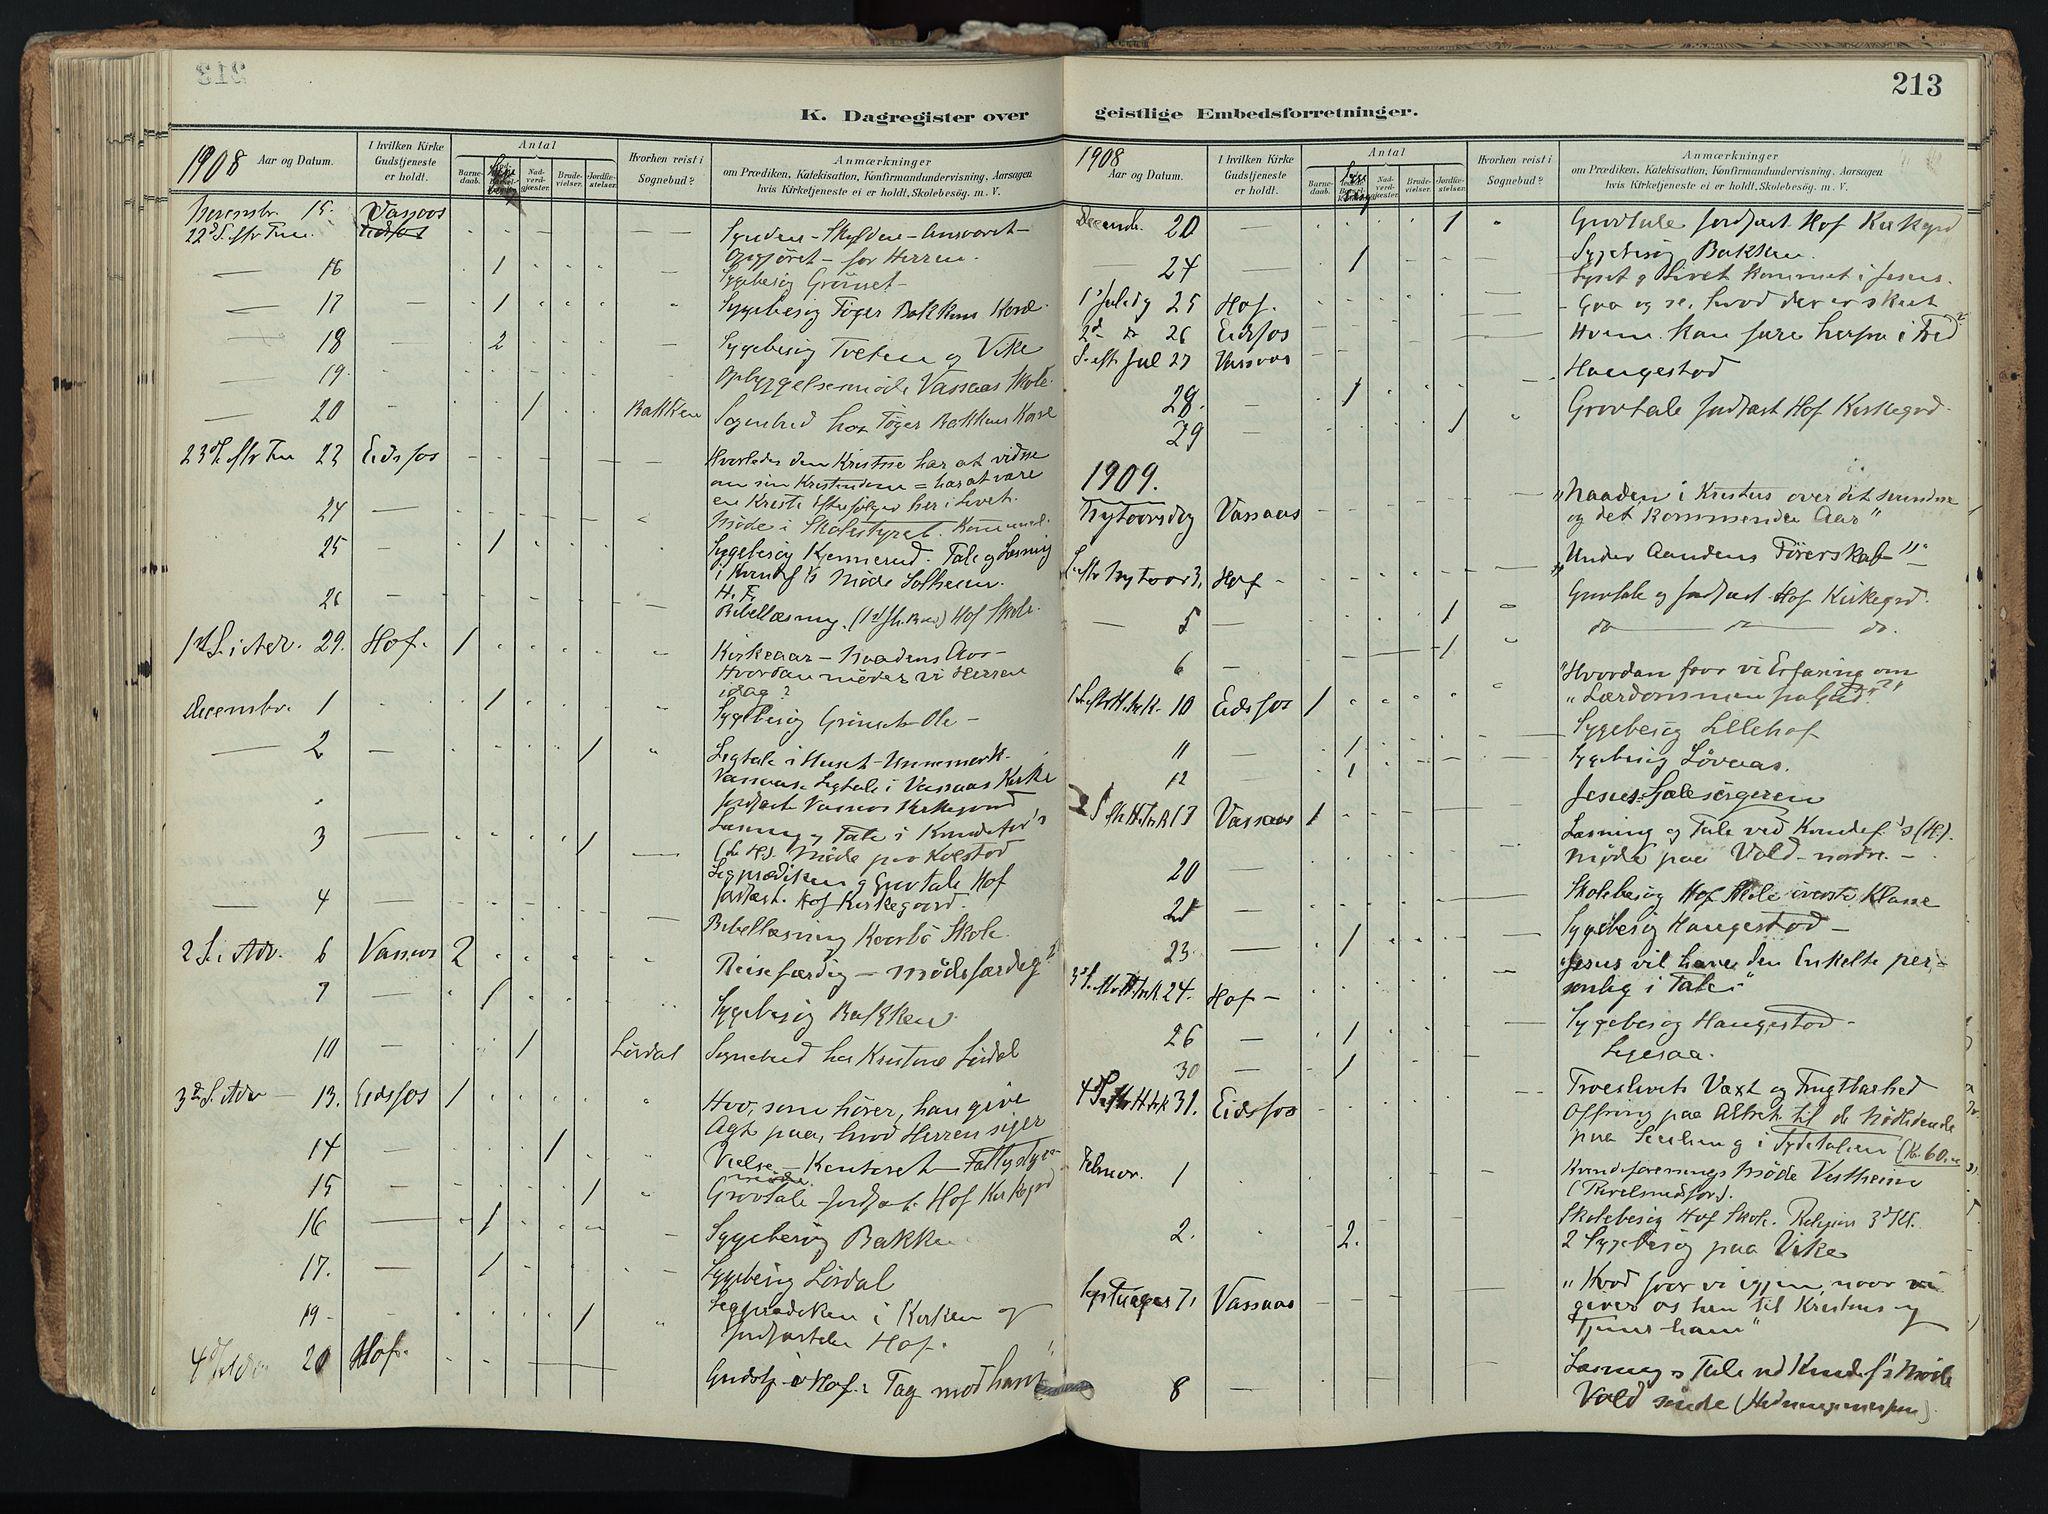 213
K. Dagregister over geistlige Embedsforretninger.
1908
Aar og Datum.
I hvilken Kirke Gudstjeneste er holdt.
Antal
Barne-daab.
Nad-verd-gjæster.
Brude-vielser.
Jordfæ-stelser.
Hvorhen reist i Sognebud?
Anmærkninger
om Prædiken, Katekisation, Konfirmandundervisning, Aarsagen
hvis Kirketjeneste ei er holdt, Skolebesøg. m. V.
15 Vassaas
22d S. eftr Trin. Eidsfos Synden - Skylden - Ansvaret -
Opgjøret - for Herren.
16 1 Sygebesøg Grönset
17 1 Sygebesøg Bakken
18 2 Sygebesøg Tveten og Vike
19 Opbyggelsesmøde Vassaas Skole.
20 1 Bakken Sognebud hos Bakken
23d S. eftr Trin 22 Eidsfos Hvorledes den Kristne har at vidne
om sin Kristendom = har at være
en Kristi Efterfølger her i Livet.
24 Møde i Skolestyret.
25 1 Sygebesøg Kjennerud. Tale og Læsning
i Kvindf's Møde Solheim
26 Bibellæsning Hof Skole.
1st S. i Adv. 29. Hof. 1 Kirkeaar - Naadens Aar -
Hvordan møder vi Herren
idag?
Decembr. 1 1 Sygebesøg Grönset Ole -
2 1 Ligtale i Huset
Ligtale i Vassaas Kirke
Jordfæst Vassaas Kirkegaard
3 1 Læsning og Tale i Kvindefor's
Møde paa Kolstad
Ligprædiken og Gravtale Hof
4 jordfæst. Hof Kirkegaard.
Bibellæsning Skole
2 S. i Adv. 6 Vassaas 2 Reisefærdig - mødefærdig?
7 1 Sygebesøg Bakken
10 1 Lördal Sognebud hos Kristine Lördal
3d S. i Adv - 13. Eidsfos 1 Hvo, som hører, han give
Agt paa, hvad Herren siger
14 1 Vielse - Kontoret - Fattigstyre-
møde.
15 1 Gravtale - Jordfæst. Hof Kirkegrd
16 1 Sygebesøg Bakken
17. 1 Sygebesøg Lördal
19 1 Ligprædiken i Kirken og
Jordfæstelse Hof.
20 Hof. Gudstj. i Hof: Tag mod ham!
213
1908
Aar og Datum.
I hvilken Kirke Gudstjeneste er holdt.
Antal
Barne-daab.
Nad-verd-gjæster.
Brude-vielser.
Jordfæ-stelser.
Hvorhen reist i Sognebud?
Anmærkninger
om Prædiken, Katekisation, Konfirmandundervisning, Aarsagen
hvis Kirketjeneste ei er holdt, Skolebesøg. m. V.
Decemb. 20 1 Gravtale Jordfæst. Hof Kirkegrd
24 1 Sygebesøg Bakken
1st Juledg 25 Hof. Lyset og Livet kommet i Jesus.
2d 26 Eidsfos Gaa og se, hvad der er skeet
S. eft. Jul 27 Vassaas Hvem kan fare herfra i Fred?
28. 1 Haugestad
29 1 Gravtale jordfæst Hof Kirkegrd.
1909.
Nytaarsdag Vassaas "Naaden i Kristus over det svundne
og det kommende Aar"
S. eftr Nytaar 3. Hof "Under Aandens Førerskab"
5 1 Gravtale og jordfæst. Hof Kirkegrd.
6 1 do do do.
10 Eidsfos 1 "Hvordan faar vi Erfaring om
"Lærdommen"
11 1 Sygebesøg Lillehof
12 1 Sygebesøg Løvaas.
17 Vassaas 1 Jesus: Sjælesørgeren
Læsning og Tale ved Kvindef.'s (H).
20 Møde paa Vold nordre. -
21 Skolebesøg Hof Skole øverste Klasse
23. 1 Sygebesøg Haugestad -
24. Hof - "Jesus vil have den Enkelte per-
sonlig i Tale"
26 1 Sygebesøg Haugestad -
30 1
31. Eidsfos Troeslivets Væxt og Frugtbarhed
Offring paa Altret til de Nødlidende
paa Sicilien og i Syditalien (Kr. 60.
Februar. 1 Kvindeforenings Møde Vestheim
2. 2. Skolebesøg Hof Skole. Religion 3d Kl.
2 Sygebesøg paa Vike
7. Vassaas "Hvad faar vi igjen, naar vi
giver os hen til Kristus og
Tjener ham"
8 Læsning og Tale ved Kvindef's Møde
Vold søndre (Hedningemissjon)